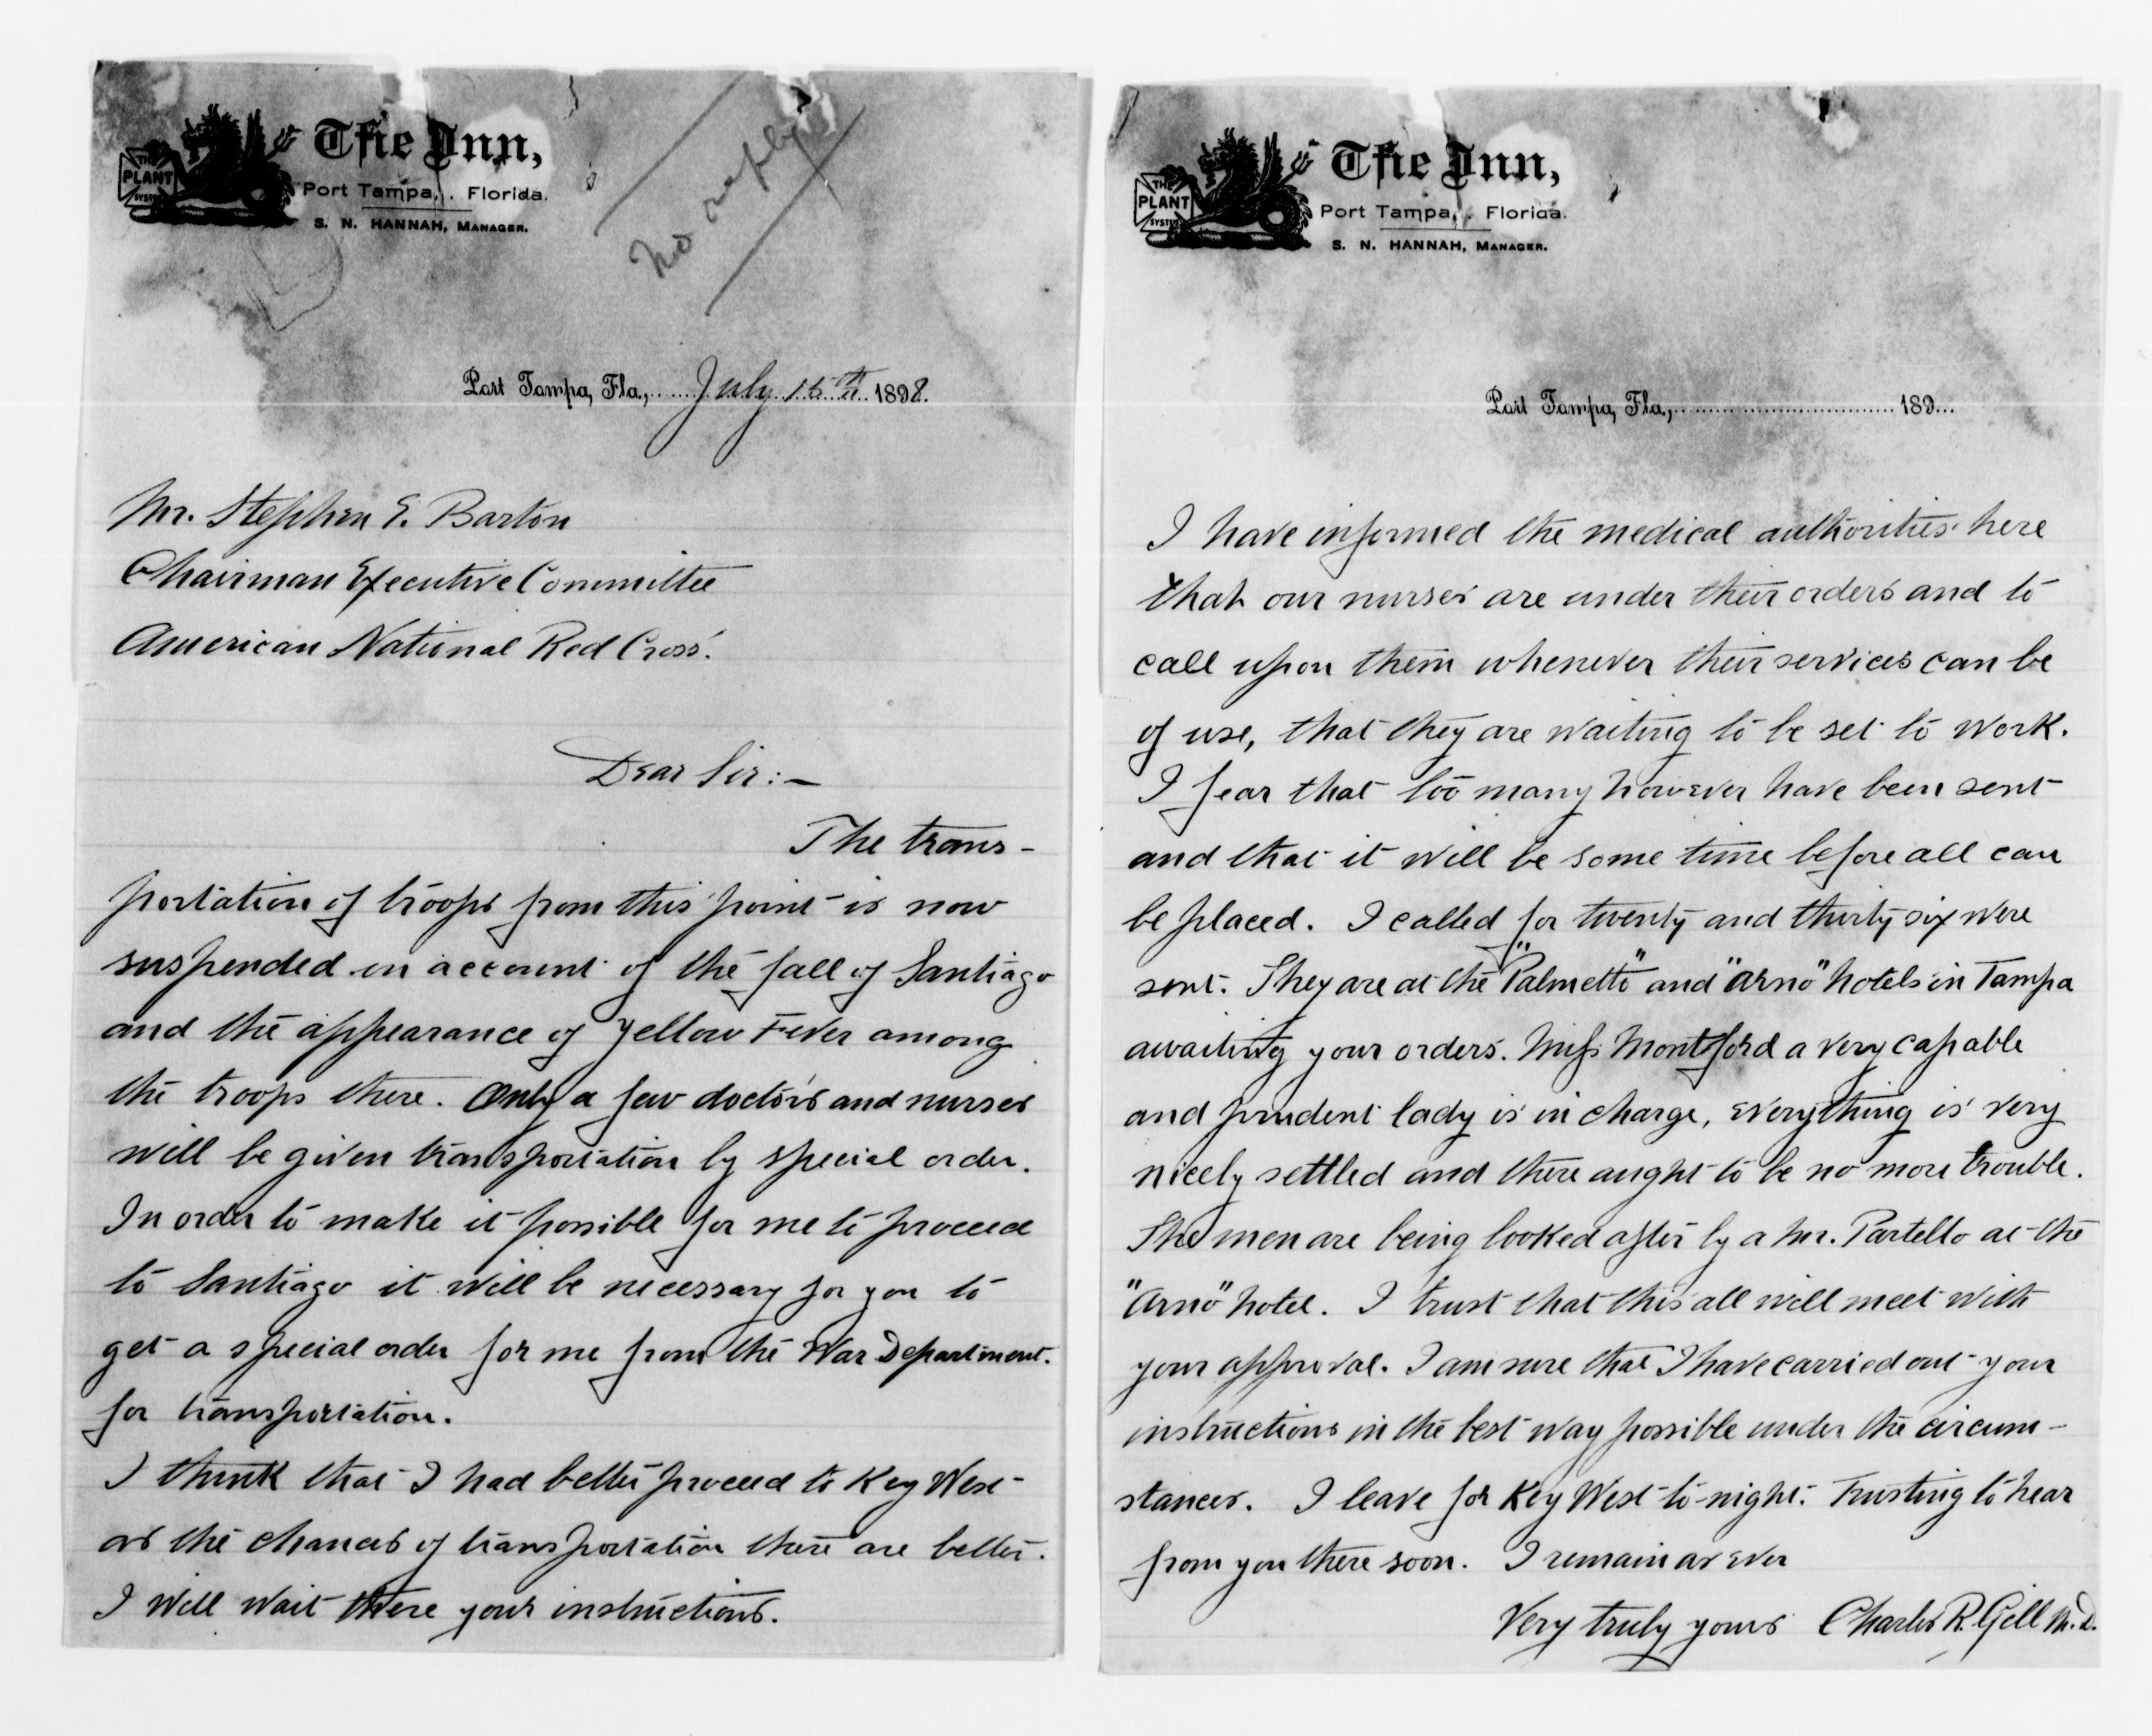 THE
PLANT
SYSTEM
The Inn,
Port Tampa, Florida.
S. N. HANNAH, MANAGER.
No reply
Port Tampa, Fla., July 15th 1898.
Mr. Stephen E. Barton
Chairman Executive Committee
American National Red Cross.
Dear Sir:—
The trans-
portation of troops from this point is now
suspended on account of the fall of Santiago
and the appearance of Yellow Fever among
the troops there. Only a few doctors and nurses
will be given transportation by special order.
In order to make it possible for me to proceed
to Santiago it will be necessary for you to
get a special order for me from the War Department.
for transportation.
I think that I had better proceed to Key West
as the chances of transportation there are better.
I will wait there your instructions.
THE
PLANT
SYSTEM
The Inn,
Port Tampa, Florida.
S. N. HANNAH, MANAGER.
Port Tampa, Fla., 189...
I have informed the medical authorities here
that our nurses are under their orders and to
call upon them whenever their services can be
of use, that they are waiting to be set to work.
I fear that too many however have been sent
and that it will be some time before all can
be placed. I called for twenty and thirty six were
sent. They are at the "Palmetto" and "Arno" hotels in Tampa
awaiting your orders. Miss Montford a very capable
and prudent lady is in charge, everything is very
nicely settled and there aught to be no more trouble.
The men are being looked after by a Mr. Partello at the
"Arno" hotel. I trust that this all will meet with
your approval. I am sure that I have carried out your
instructions in the best way possible under the circum-
stances. I leave for Key West to-night. Trusting to hear
from you there soon. I remain as ever
Very truly yours Charles R. Gill M.D.